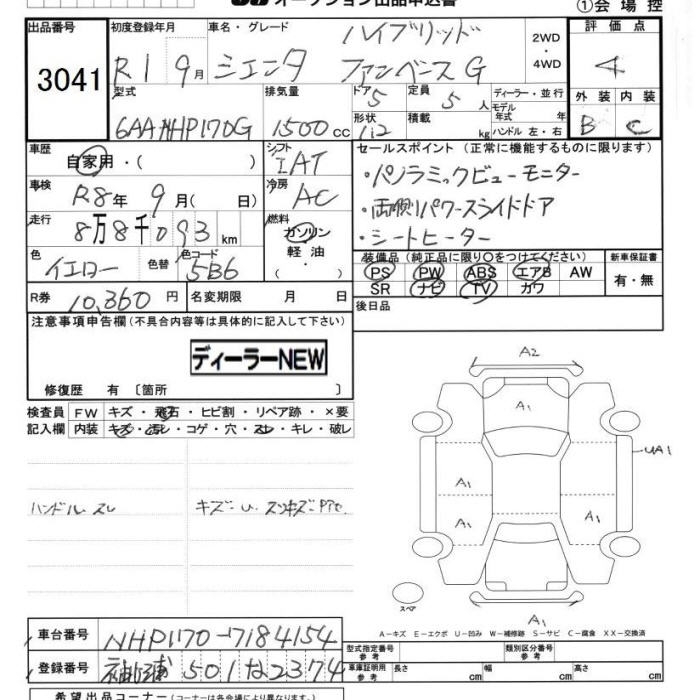 オークション出品申込書
①会場控
出品番号 初度登録年月 車名・グレード 評価点
3041 R1 9月 シエンタ ハイブリッド ファンベースG 2WD・4WD 4
型式 排気量 ドア 定員 ディーラー・並行 外装 内装
6AA NHP170G 1500cc 5 5人 モデル年式 年 B C
形状 積載 kg ハンドル 左・右
車歴 自家用・( ) シフト IAT セールスポイント (正常に機能するものに限ります)
車検 R8年 9月( 日) 冷房 AC ・パノラミックビューモニター
走行 8万8千093km 燃料 ガソリン 軽油・ ・両側パワースライドドア
色 イエロー 色替 色コード 5B6 ・シートヒーター
装備品 (純正品に限り○をつけてください) 新車保証書
PS PW ABS エアB AW 有・無
SR ナビ TV カワ
R券 10,360円 名変期限 月 日 後日品
注意事項申告欄(不具合内容等は具体的に記入して下さい)
ディーラーNEW
修復歴 有 〔箇所 〕
検査員記入欄 FW キズ・飛石・ヒビ割・リペア跡・×要
内装 キズ・汚レ・コゲ・穴・スレ・キレ・破レ
ハンドル スレ
A2
A1
UA1
A1
A1
A1
A1
スペア
A-キズ E-エクボ U-凹み W-補修跡 S-サビ C-腐食 XX-交換済
車台番号 NHP170-7184154
型式指定番号 類別区分番号
登録番号 袖ヶ浦 501 な 2374
車庫証明用参考 長さ cm 幅 cm 高さ cm
希望出品コーナー(コーナーは各会場により異なります。)